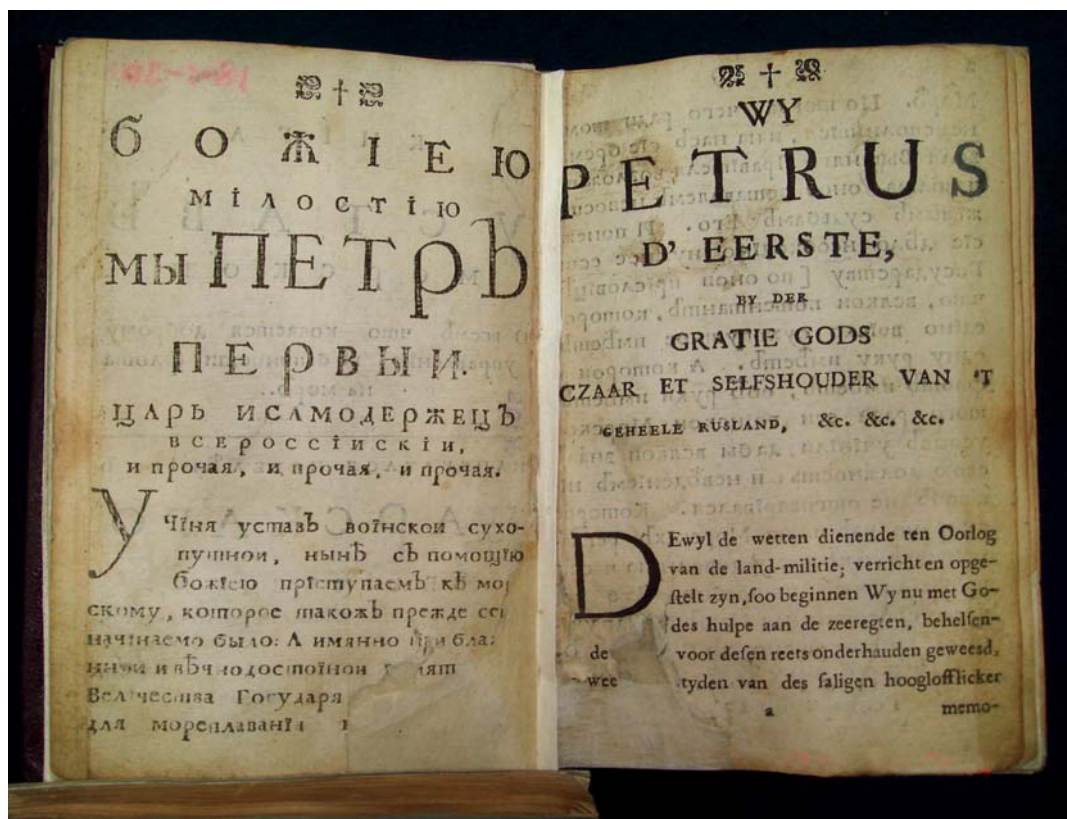 БОЖІЕЮ
МІЛОСТІЮ
МЫ ПЕТРЪ
ПЕРВЫИ.
ЦАРЬ ИСАМОДЕРЖЕЦЪ
ВСЕРОССІИСКІИ,
и прочая, и прочая, и прочая.
УЧІня уставЪ воїнскои сухо-
путнои, нынѣ сЪ помощїю
Божїею прїступаемЪ кЪ мо
скому, которое такожЪ прежде се
начїнаемо было: А имянно при бла
и вѣчнодостоїнои
Велїчества Государя
для мореплаванїя
WY
PETRUS
D' EERSTE,
BY DER
GRATIE GODS
CZAAR ET SELFSHOUDER VAN 'T
GEHEELE RUSLAND, &c. &c. &c.
DEwyl de wetten dienende ten Oorlog
van de land-militie; verricht en opge-
ſtelt zyn, ſoo beginnen Wy nu met Go-
des hulpe aan de zeeregten, behelſen-
de voor deſen reets onderhauden geweesd,
wee tyden van des ſaligen hooglofflicker
a memo-